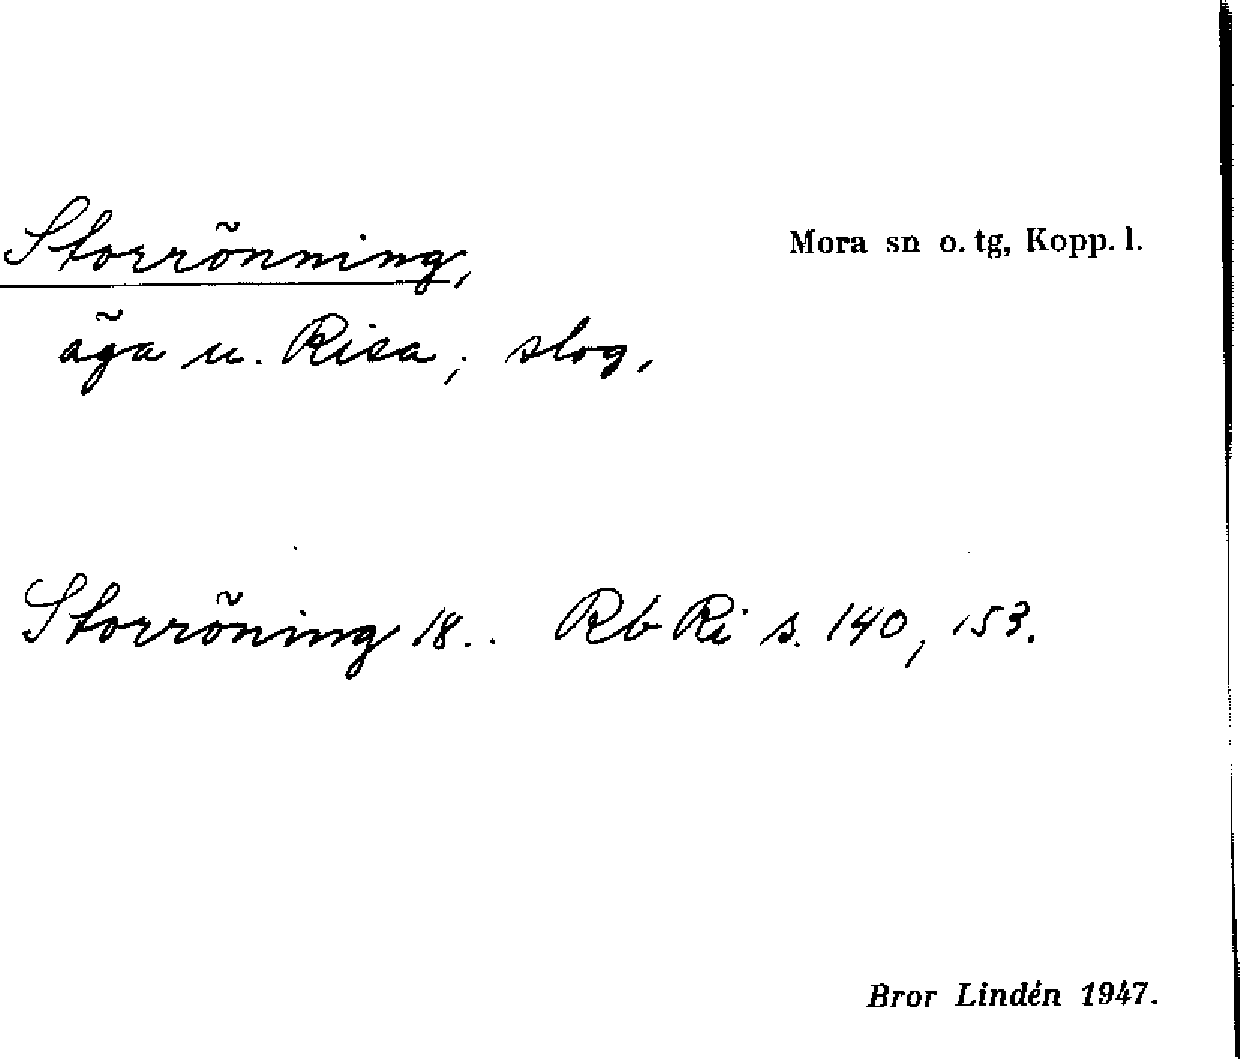 Storrönning,
Mora sn o. tg, Kopp. l.
äga u. Risa; slog.
Storröning 18.. Rb Ri s. 140, 153.
Bror Lindén 1947.